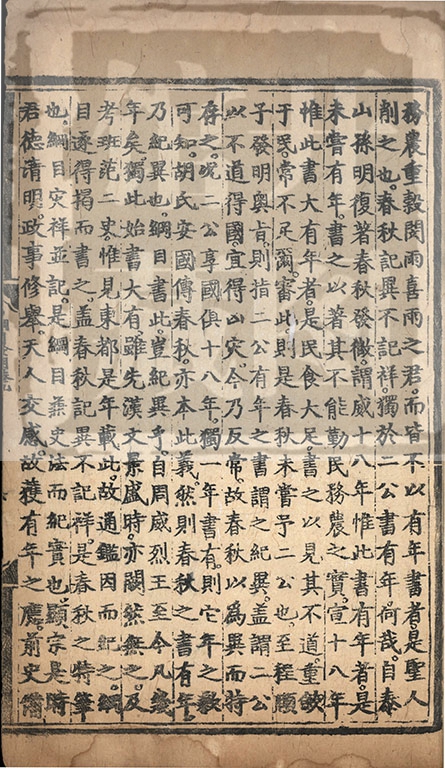 務農重穀閔雨喜雨之君而皆不以有年書者是聖人
削之也春秋記異不記祥獨於二公書有年何哉自泰
山孫明復著春秋發微謂威十八年惟此書有年者是
未嘗有年書之以著其不能勤民務農之實宣十八年
惟此書大有年者是民食大足書之以見其不道重斂
于民常不足爾審此則是春秋未嘗予二公也至程頤
子發明奥旨則指二公有年之書謂之紀異盖謂二公
以不道得國宜得凶灾今乃反常故春秋以為異而特
存之况二公享國俱十八年獨一年書有則它年之歉
可知胡氏安國傳春秋亦本此義然則春秋之書有年
乃紀異也綱目書此豈紀異乎自周威烈王至今凡幾
年矣獨此始書大有雖先漢文景盛時亦闕然無之及
考班范二史惟見東都是年載此故通鑑因而紀之綱
目遂得揭而書之盖春秋記異不記祥是春秋之特筆
也綱目灾祥並記是綱目兼史法而紀實也顯宗是時
君德清明政事修舉天人交感故獲有年之應前史備